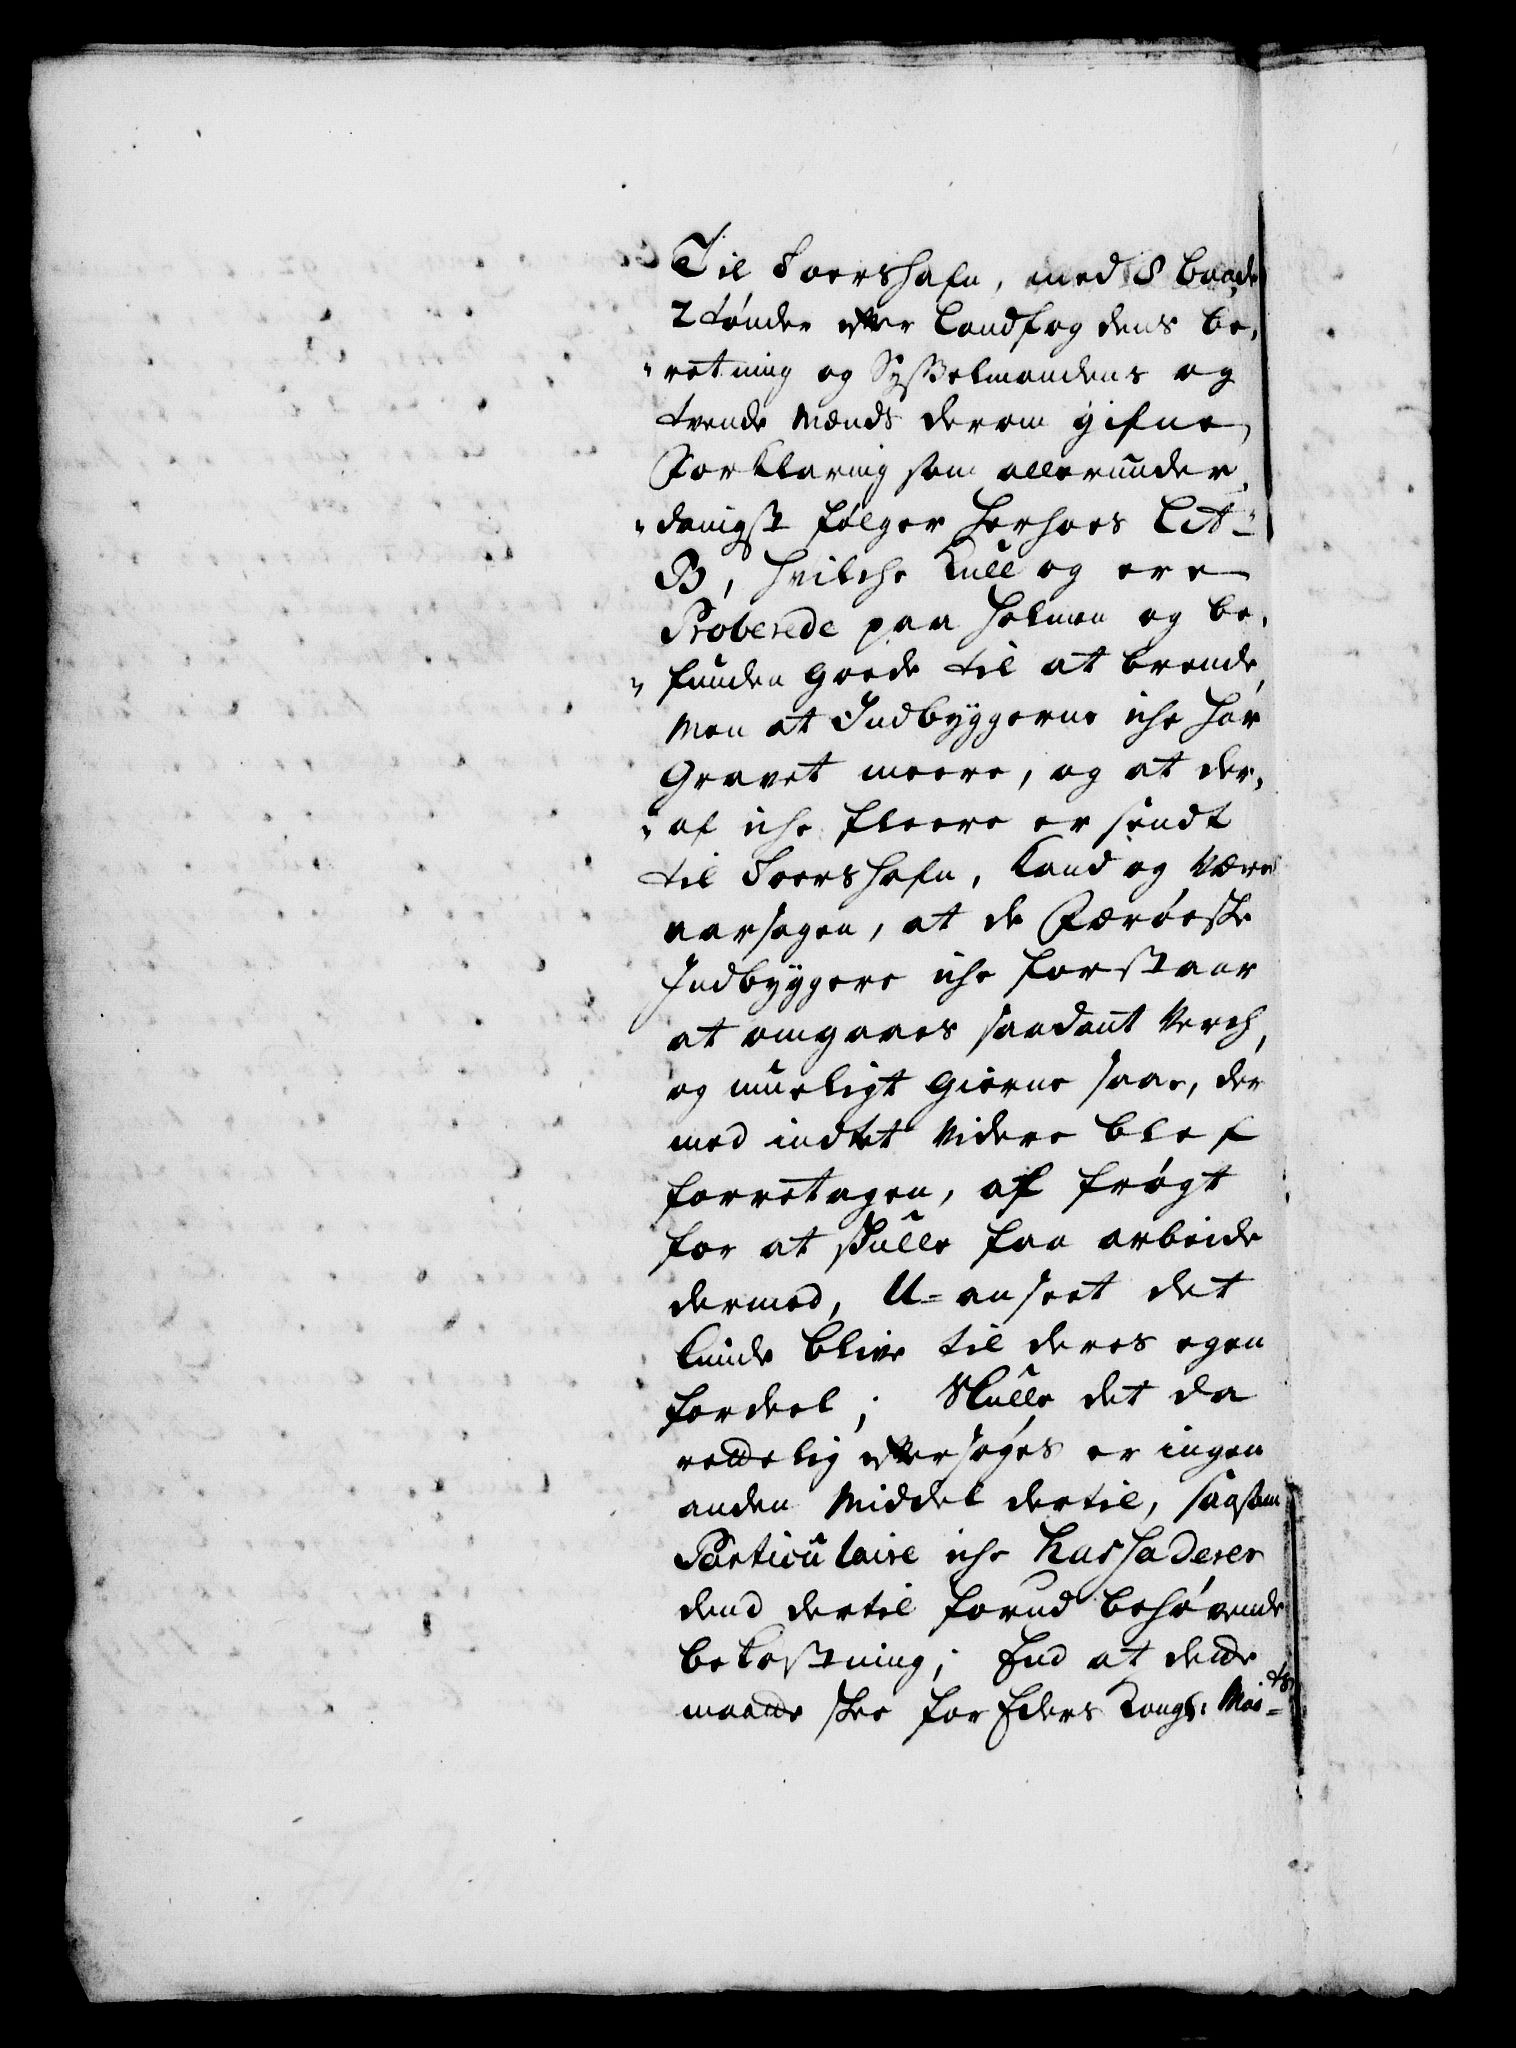 Til Toershafn, med 8 baade
2 tønder efter Landfogdens be,
"retning og Sysselmandens og
tvende Mænds derom gifne
Forklaring som allerunder,
"danigst følger herhoes Lit-
B, hvilche Kull og ere
Proberede paa Holmen og be,
"funden goede til at brende,
Men at Indbyggerne iche har
Gravet meere, og at der,
"af iche fleere er sendt
til Toershafn, Kand og være
aarsagen, at de Færøeske
Indbyggere iche forstaar
at omgaaes saadant Verch,
og mueligt gierne saae, der
med indtet videre blef
forretagen, af frøgt
for at skulle faa arbeide
dermed, U-anseet det
kunde blive til deres egen
fordeel; Skulle det da
rettelig eftersøges er ingen
anden Middel dertil, saasom
Particulaire iche hasarderer
dend dertil forud behøvende
bekostning; End at dette
maatte skee for Eders Kongl: Mai-ts